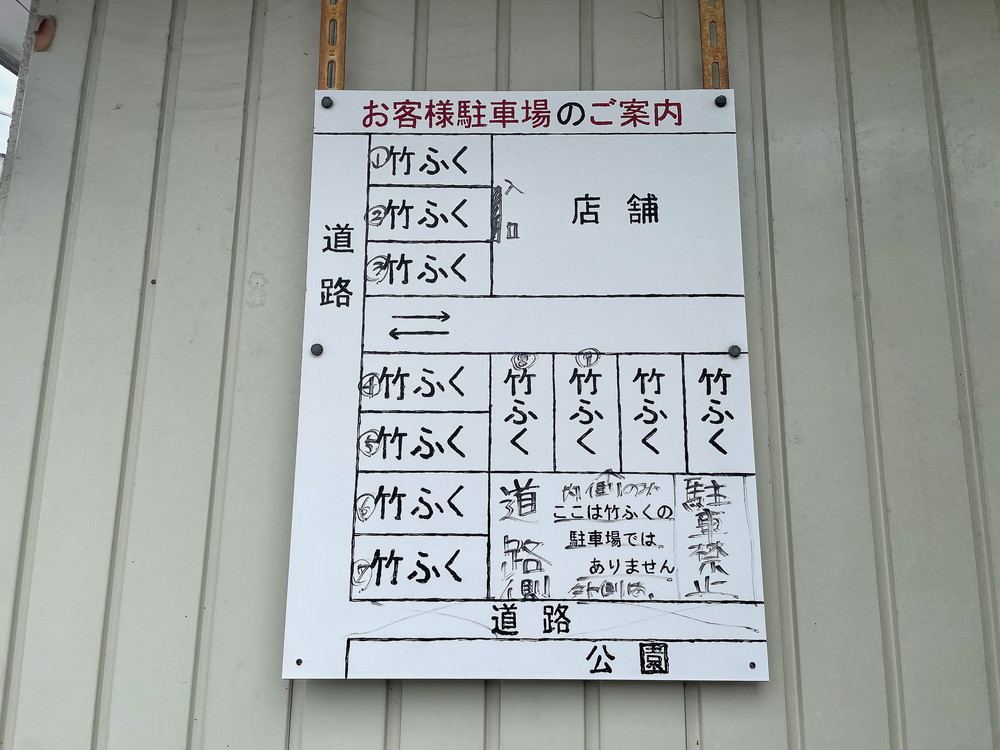 お客様駐車場のご案内
①竹ふく
②竹ふく
③竹ふく
入口
店舗
道路
④竹ふく
⑤竹ふく
⑥竹ふく
⑦竹ふく
⑧
竹ふく
⑨
竹ふく
竹ふく
竹ふく
道路側
内側のみ
ここは竹ふくの
駐車場では
ありません
駐車禁止
道路
公園